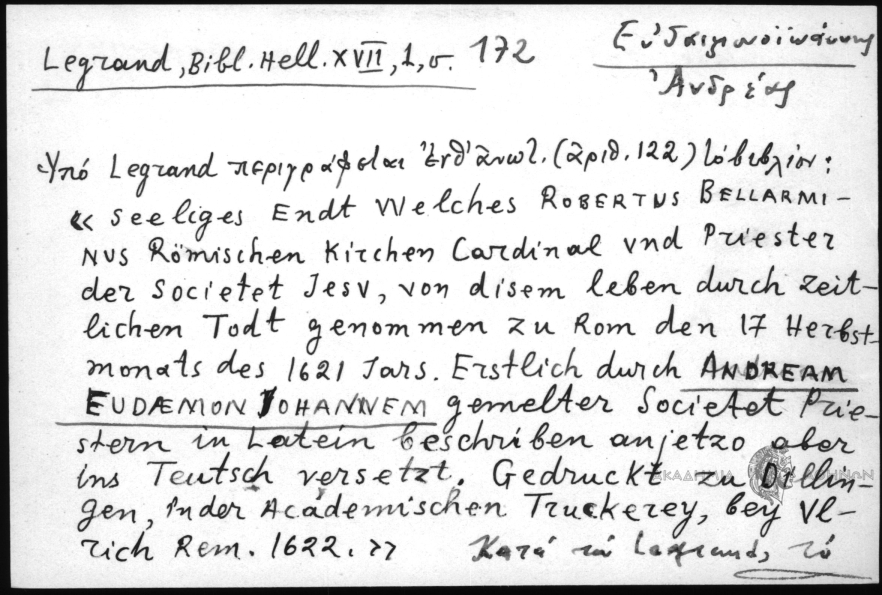 Legrand, Bibl. Hell. XVII, 1, σ. 172
Εὐδαιμονοϊωάννης
Ἀνδρέας
Ὑπό Legrand περιγράφεται ἐνθ' ἀνωτ. (ἀριθ. 122) τό βιβλίον:
« Seeliges Endt Welches ROBERTUS BELLARMI-
NVS Römischen Kirchen Cardinal vnd Priester
der Societet Jesv, von disem leben durch zeit-
lichen Todt genommen zu Rom den 17 Herbst-
monats des 1621 Jars. Erstlich durch ANDREAM
EUDÆMON JOHANNEM gemelter Societet Prie-
stern in Latein beschriben anjetzo aber
ins Teutsch versetzt. Gedruckt zu Dillin-
gen, in der Académischen Truckerey, bey Vl-
rich Rem. 1622. »  Κατά τόν Legrand, τό
ΑΚΑΔΗΜΙΑ ΑΘΗΝΩΝ